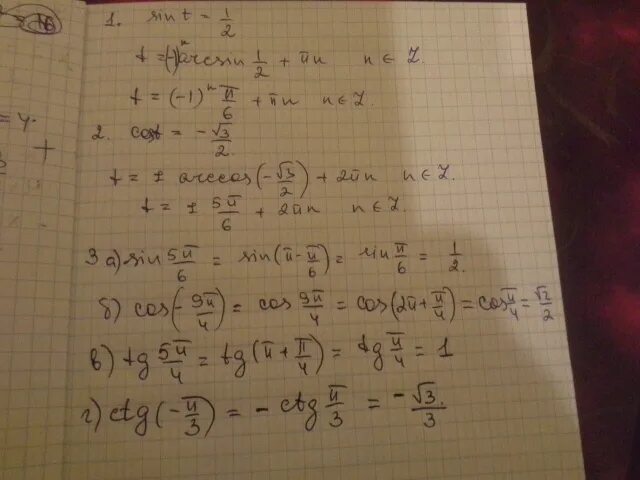 1. sin t = 1/2
t = (-1)ⁿ arcsin 1/2 + πn n ∈ Z.
t = (-1)ⁿ π/6 + πn n ∈ Z.
2. cos t = -√3/2.
t = ± arccos(-√3/2) + 2πn n ∈ Z.
t = ± 5π/6 + 2πn n ∈ Z.
3 а) sin 5π/6 = sin(π - π/6) = sin π/6 = 1/2.
б) cos(-9π/4) = cos 9π/4 = cos(2π + π/4) = cos π/4 = √2/2
в) tg 5π/4 = tg(π + π/4) = tg π/4 = 1
г) ctg(-π/3) = - ctg π/3 = -√3/3